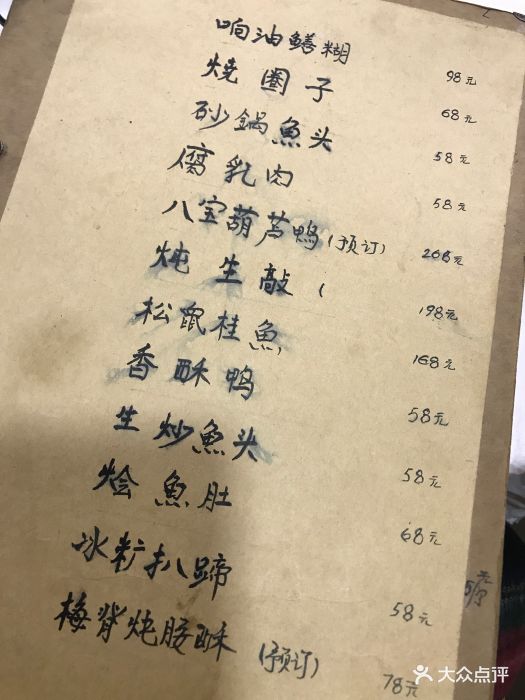 响油鳝糊 98元
烧圈子 68元
砂鍋魚头 58元
腐乳肉 58元
八宝葫芦鸭(预订) 268元
炖生敲( 198元
松鼠桂魚 168元
香酥鸭 58元
生炒魚头 58元
烩魚肚 68元
冰籿扒蹄 58元
梅脊炖腰酥(预订) 78元
大众点评